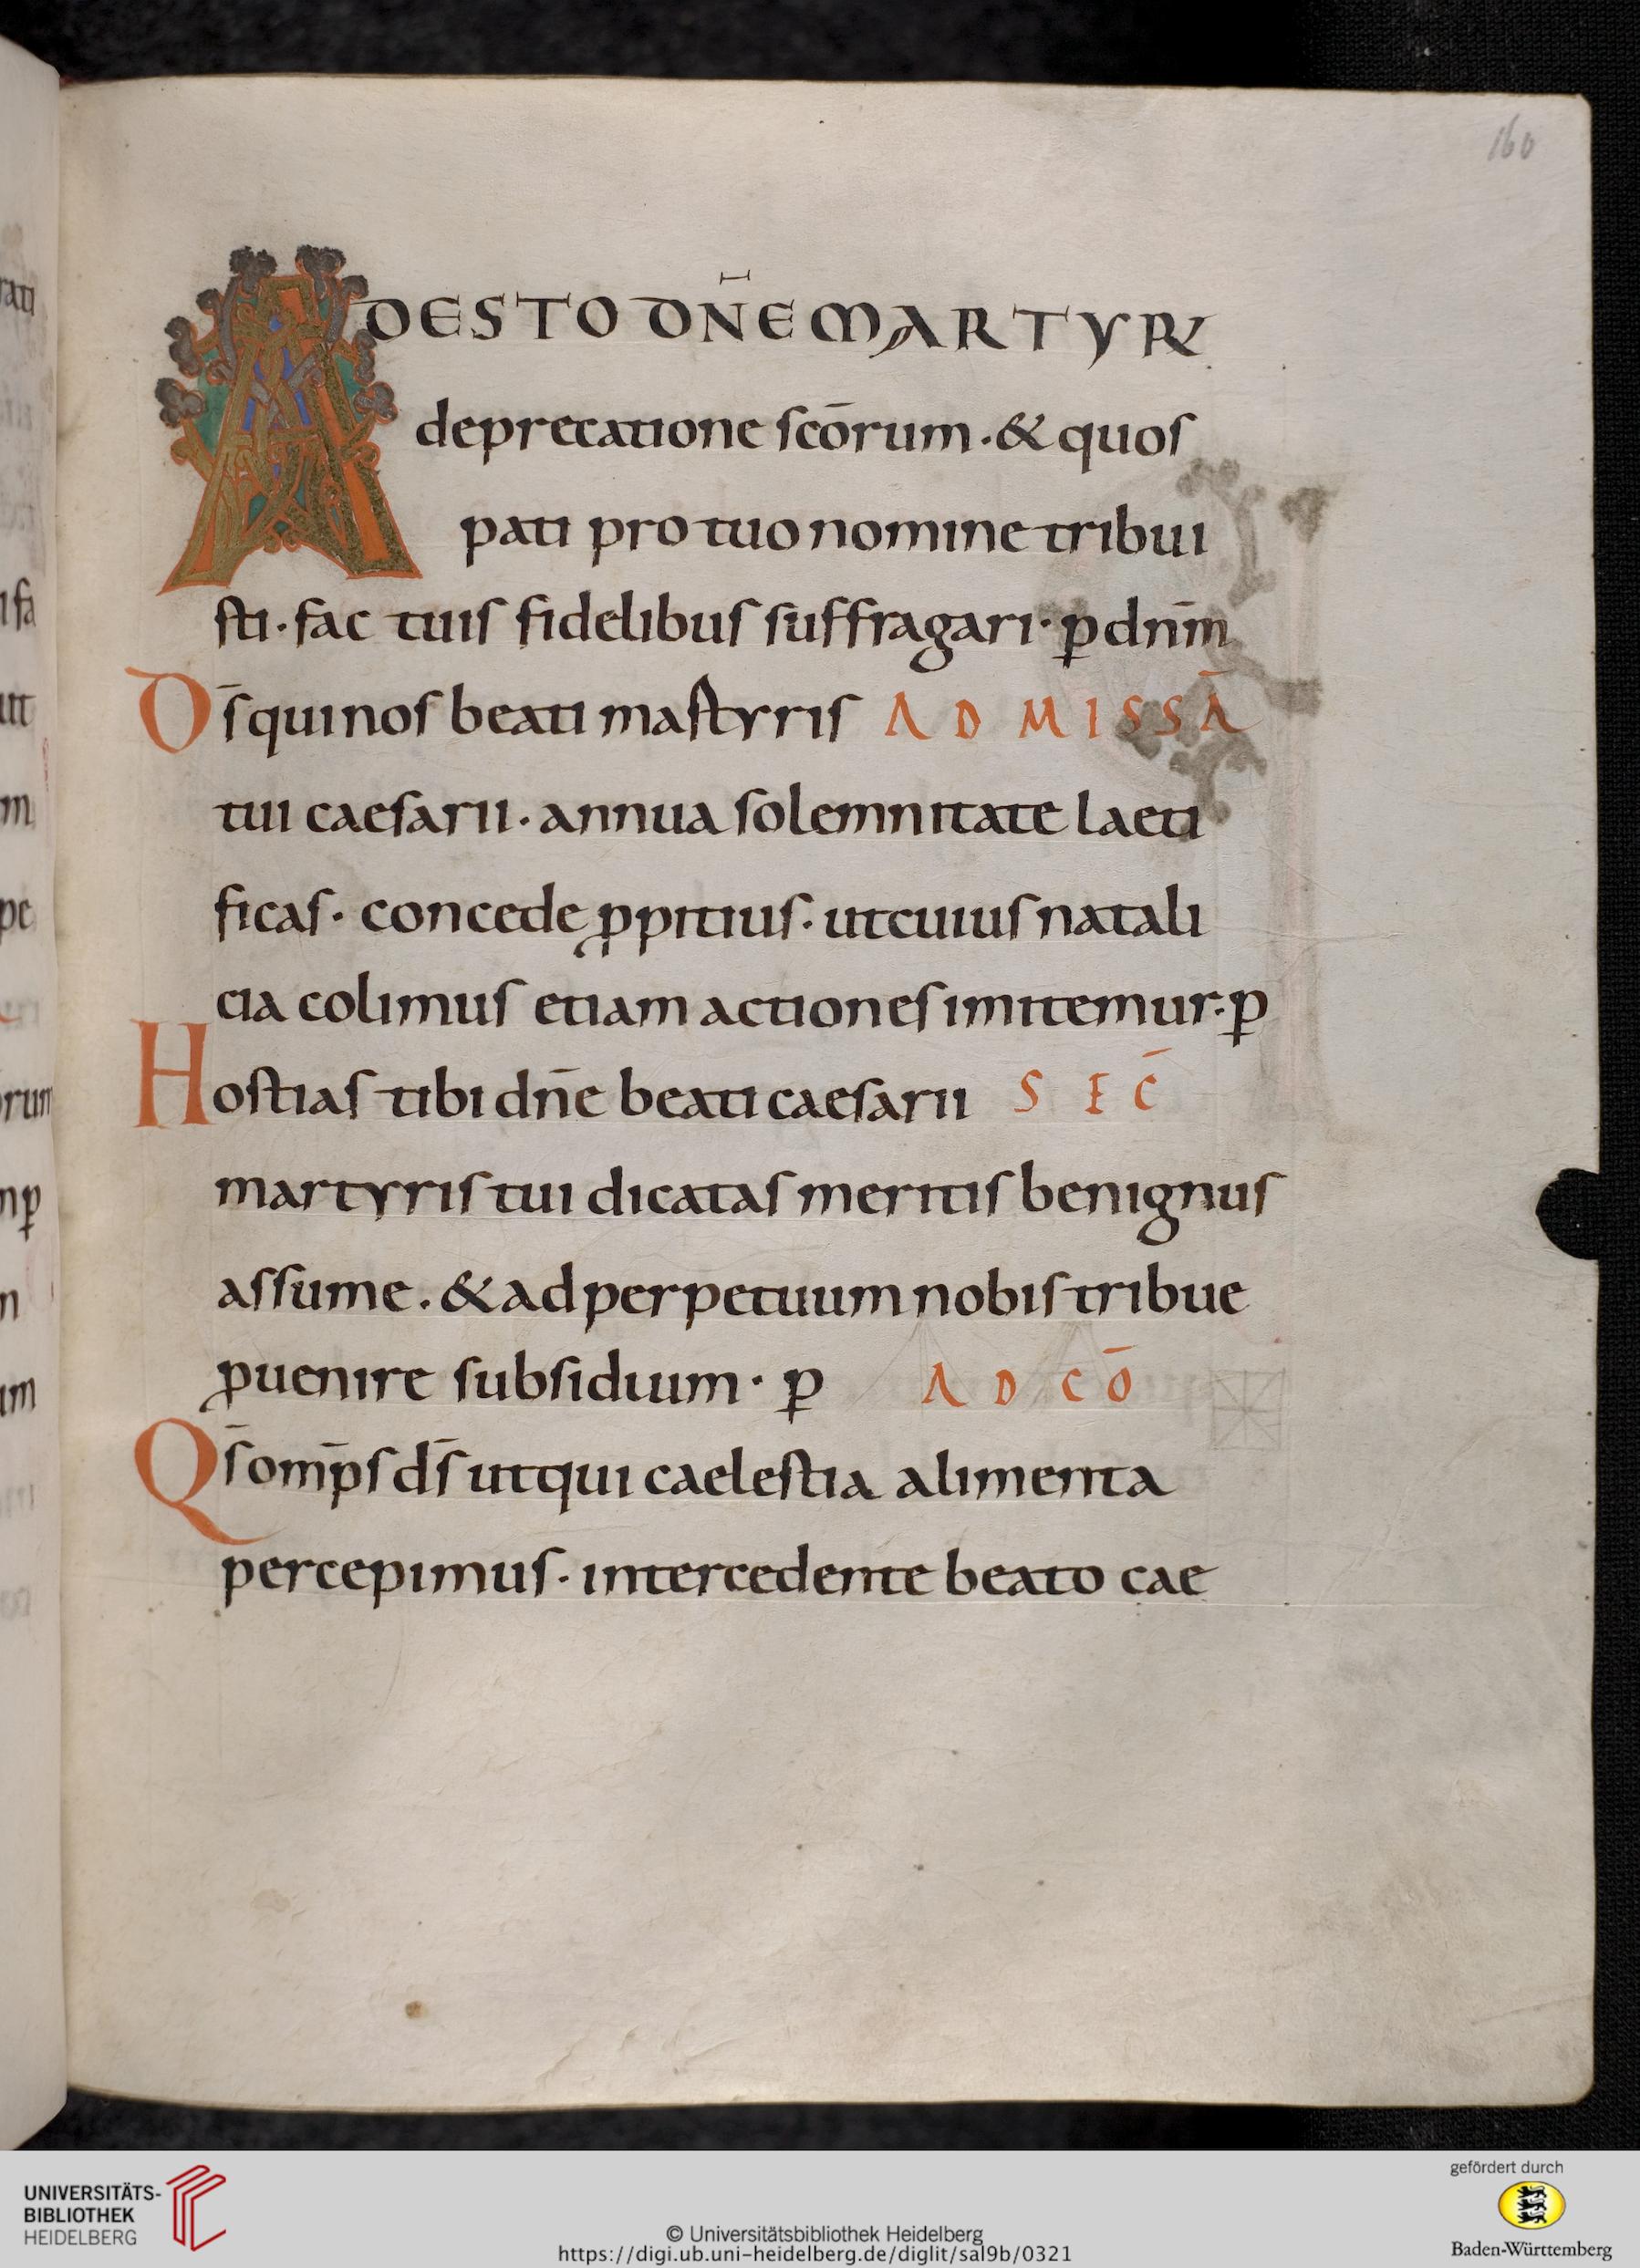 160
ADESTO DN̄E MARTYRV̄
deprecatione sc̄orum · & quos
pati pro tuo nomine tribui
sti · fac tuis fidelibus suffragari · p̱ dnm̄
Ds̄ qui nos beati mastyris AD MISSĀ
tui caesarii · annua solemnitate laeti
ficas · concede ꝓpitius · ut cuius natali
cia colimus etiam actiones imitemur · ꝑ
Hostias tibi dn̄e beati caesarii SEC̄
martyris tui dicatas meritis benignus
assume · & ad perpetuum nobis tribue
ꝓuenire subsidium · ꝑ AD CŌ
Qs̄ omp̄s ds̄ ut qui caelestia alimenta
percepimus · intercedente beato cae
UNIVERSITÄTS-
BIBLIOTHEK
HEIDELBERG
© Universitätsbibliothek Heidelberg
https://digi.ub.uni-heidelberg.de/diglit/sal9b/0321
gefördert durch
Baden-Württemberg